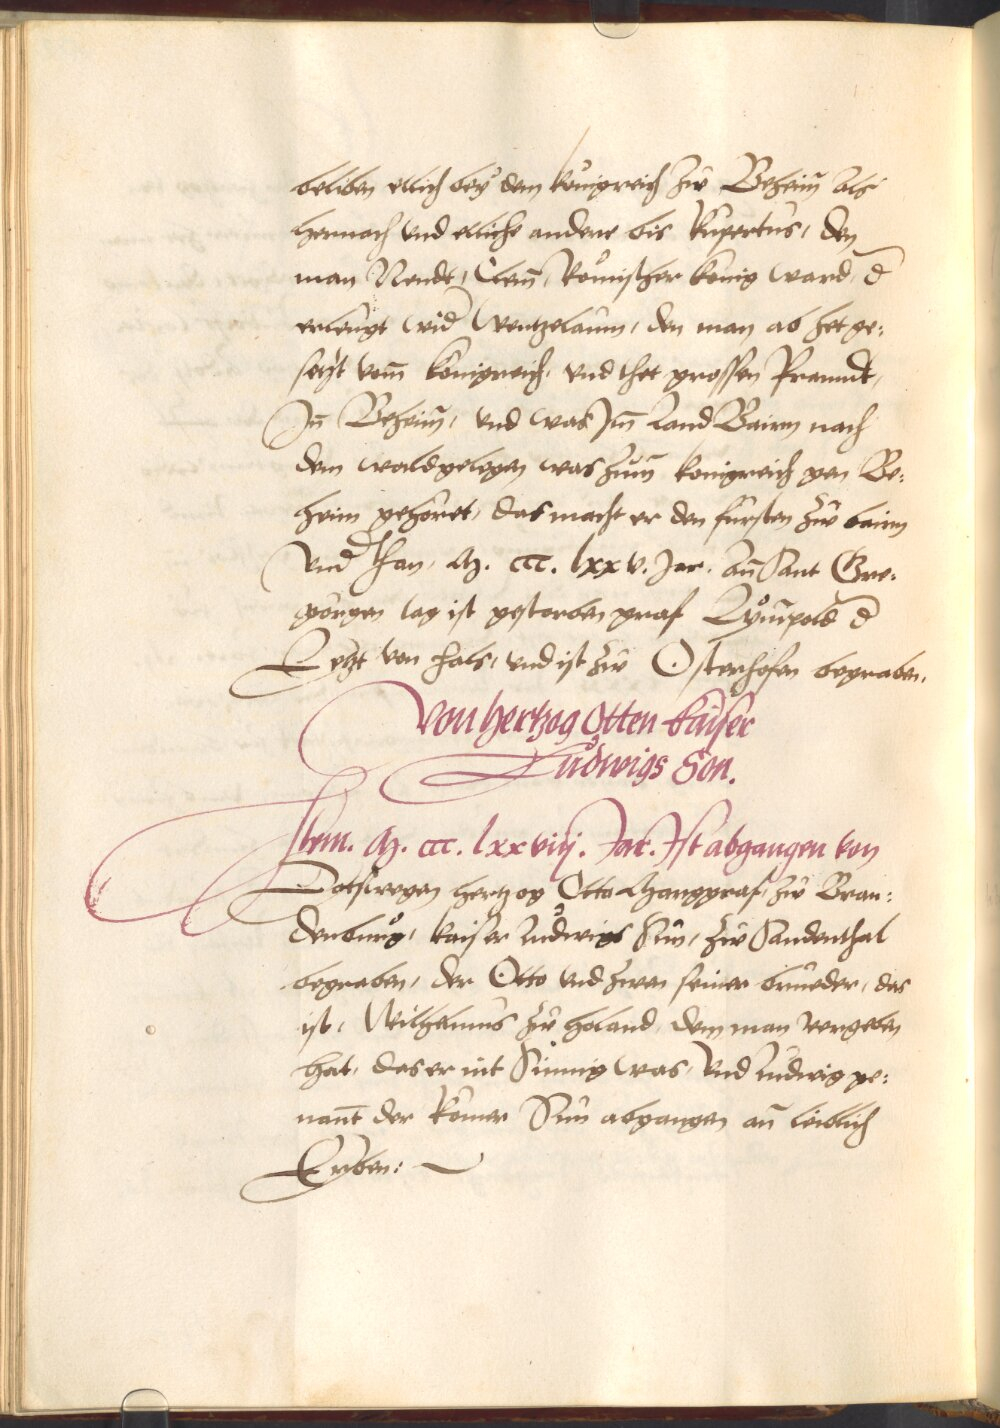 beliben etlich beÿ dem königreich zŵ Beheim̄ als
hernach vnd etliche andere bis Rupertus, den
man Nendt, Clem̄, Römischer könig ward, d̄
erleugt wid̄ Wentzelaum, den man ab het ge:
setzt vom̄ königreich, vnd thet grossen
Jn̄ Beheim̄, vnd was Jm̄ Land Bairn nach
dem wald gelegen was zum̄ königreich gen Be:
heim gehöret, das macht er den fürsten zŵ bairn
vnd̄ than, M. ccc. lxxv. Jar. an̄ Sant Gre:
görgen tag ist gestorben graf Leẘpold d̄
Letzt von Hals, vnd ist zŵ Osterhofen begraben.
Von hertzog Otten kaiser
Ludwigs Son.
Item. M. ccc. lxxviiij. Jar. Jst abgangen von
Totswegen hertzog Otto Marggraf, zŵ Bran:
denburg, kaiser Ludwigs Sun, zŵ Sandenthal
begraben, der Otto vnd zwen seiner brueder, das
ist, Wilhelmus zŵ holand, dem man vergeben
hat, das er nit Sinnig was, vnd Ludwig ge:
nant̄ der Römer Sun abgangen an̄ leiblich
Erben: